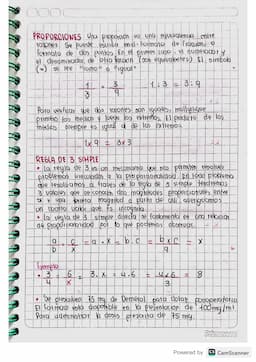 PROPORCIONES Una proporción es una equivalencia entre
razones. Se puede escribir en formato de fracción o
formato de dos puntos. En el primer caso, el numerador y
el denominador de otra fracción (son equivalentes). El símbolo
(=) se lee "como" o "igual"
1/3 = 3/9 1:3 = 3:9
Para verificar que dos razones son iguales, multiplique
primero los medios y luego los extremos. El producto de los
medios siempre es igual al de los extremos.
1x9 = 3x3
REGLA DE 3 SIMPLE
• La regla de 3 es un mecanismo que nos permite resolver
problemas vinculados a la proporcionalidad. En todo problema
que resolvamos a través de la regla de 3 simple tendremos
3 valores que se conocen dos magnitudes proporcionales entre
si y una tercera magnitud a partir de allí averiguamos
un cuarto valor que es incógnita.
• La regla de 3 simple directa se fundamenta en una relación
de proporcionalidad por lo que podemos observar.
a/b = c/x = a . x = b.c = bxc/a = x
Ejemplo
• 3/4 = 6/x = 3.x = 4.6 = 4x6/3 = 8
• Se prescriben 75 mg de Demerol para dolor posoperatorio
El fármaco está disponible en la presentación de 100 mg/ml
Para administrar la dosis prescrita de 75 mg.
Powered by CS CamScanner